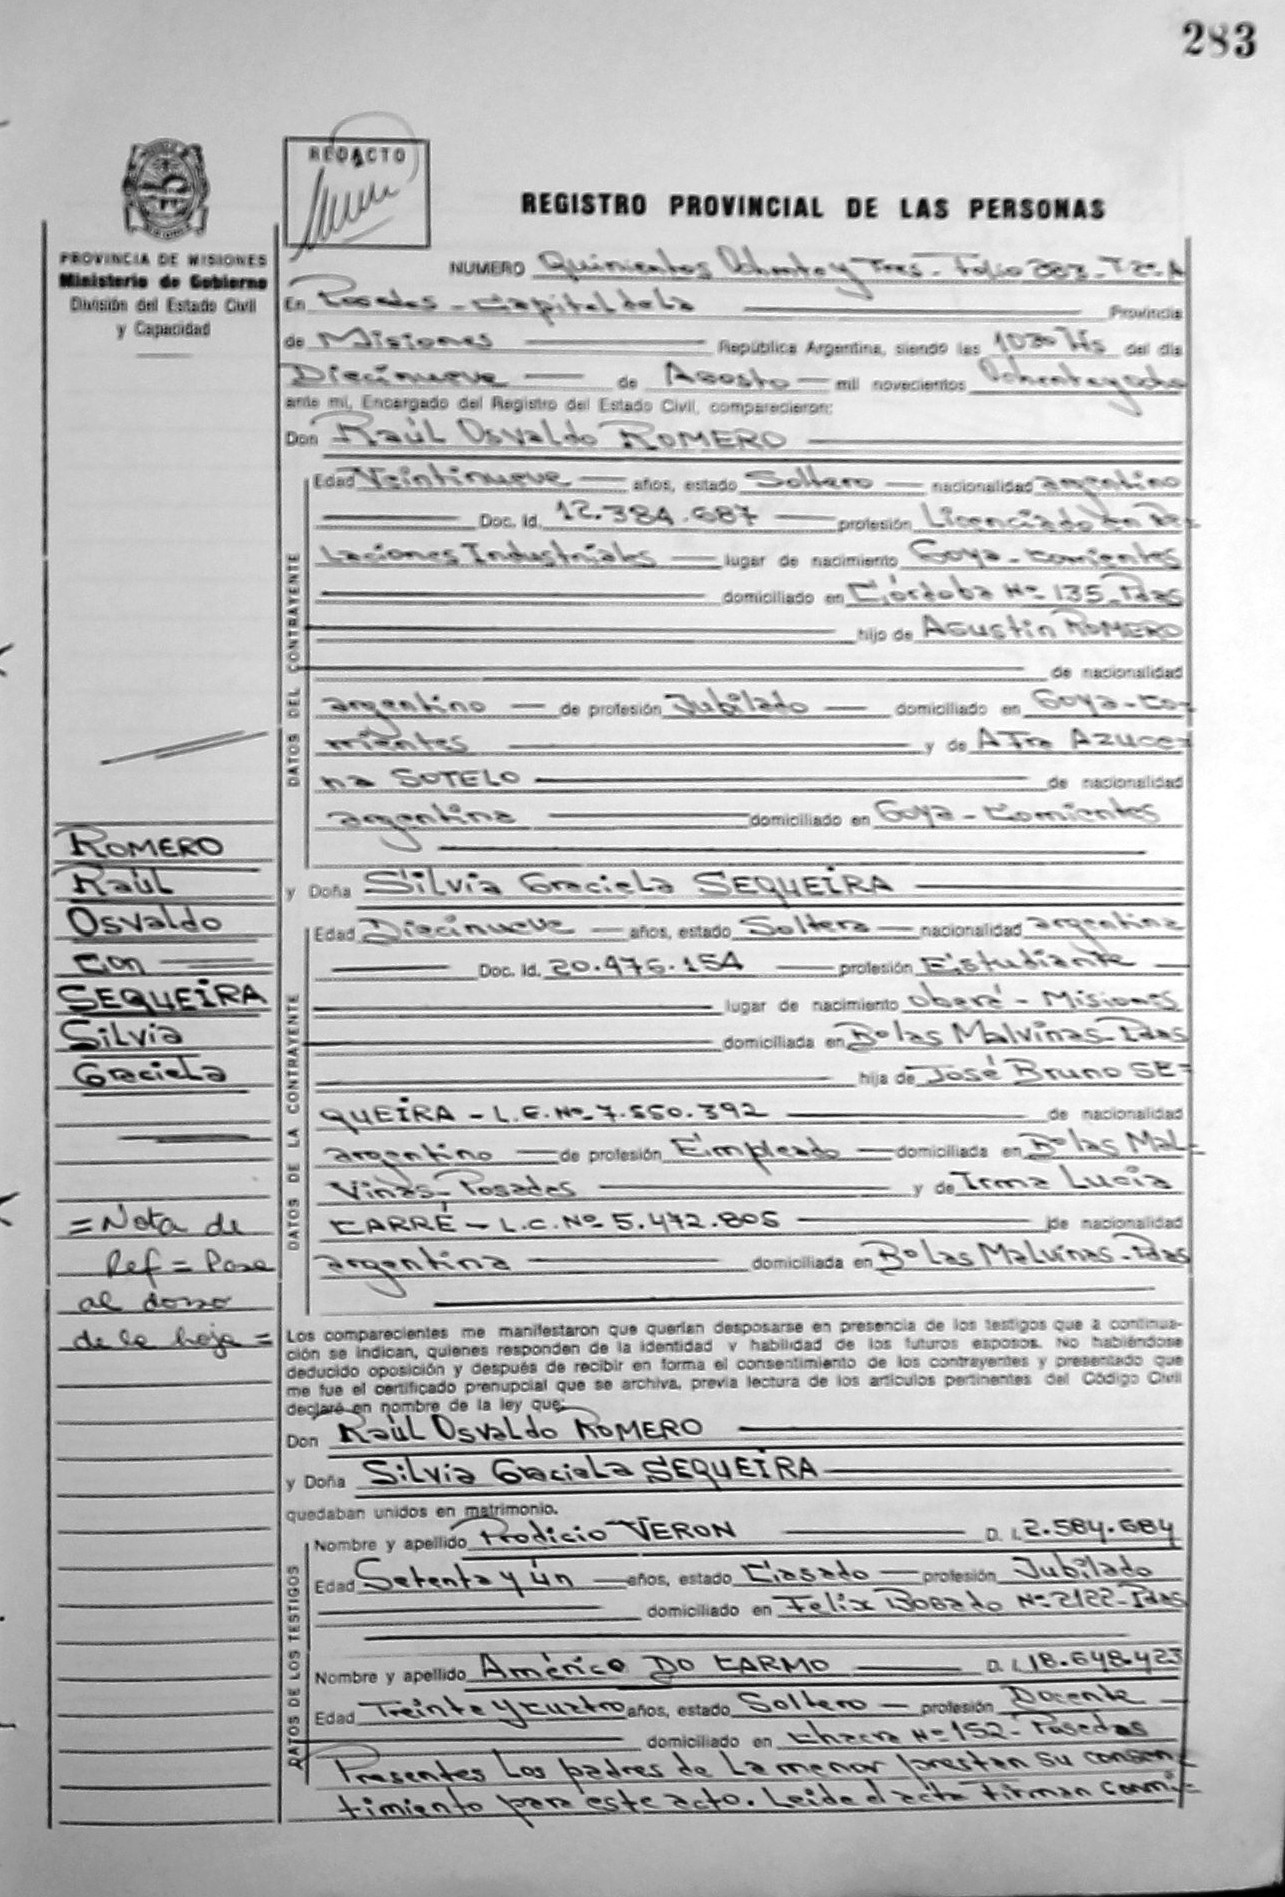 283
REDACTO
REGISTRO PROVINCIAL DE LAS PERSONAS
PROVINCIA DE MISIONES
Ministerio de Gobierno
División del Estado Civil
y Capacidad
NUMERO Quinientos Ochenta y Tres - Folio 283 - Tº A
En Posadas - Capital de la Provincia
de Misiones República Argentina, siendo las 1030 Hs del día
Diecinueve de Agosto mil novecientos Ochenta y ocho
ante mi, Encargado del Registro del Estado Civil, comparecieron:
Don Raúl Osvaldo ROMERO
DATOS DEL CONTRAYENTE
Edad Veintinueve años, estado Soltero nacionalidad argentino
Doc. Id. 12.384.687 profesión Licenciado en Re=
Laciones Industriales lugar de nacimiento Goya - Corrientes
domiciliado en Córdoba Nº 135 - Pdas
hijo de Agustín ROMERO
de nacionalidad
argentino de profesión Jubilado domiciliado en Goya - Co=
rrientes y de Azuce=
na SOTELO de nacionalidad
argentina domiciliado en Goya - Corrientes
ROMERO
Raúl
Osvaldo
con
SEQUEIRA
Silvia
Graciela
= Nota de
Ref = Pasa
al dorso
de la hoja =
y Doña Silvia Graciela SEQUEIRA
DATOS DE LA CONTRAYENTE
Edad Diecinueve años, estado Soltera nacionalidad argentina
Doc. Id. 20.476.154 profesión Estudiante
lugar de nacimiento Oberá - Misiones
domiciliada en Bº las Malvinas - Pdas
hija de José Bruno SE=
QUEIRA - L.E. Nº 7.550.392 de nacionalidad
argentino de profesión Empleado domiciliada en Bº las Mal=
vinas - Posadas y de Irma Lucia
CARRÉ - L.C. Nº 5.472.805 de nacionalidad
argentina domiciliada en Bº Las Malvinas - Pdas
Los comparecientes me manifestaron que querían desposarse en presencia de los testigos que a continua-
ción se indican, quienes responden de la identidad y habilidad de los futuros esposos. No habiéndose
deducido oposición y después de recibir en forma el consentimiento de los contrayentes y presentado que
me fue el certificado prenupcial que se archiva, previa lectura de los artículos pertinentes del Código Civil
declaré en nombre de la ley que:
Don Raúl Osvaldo ROMERO
y Doña Silvia Graciela SEQUEIRA
quedaban unidos en matrimonio.
DATOS DE LOS TESTIGOS
Nombre y apellido Prodicio VERON D. I. 2.584.684
Edad Setenta y ún años, estado Casado profesión Jubilado
domiciliado en Felix Bogado Nº 2122 - Pdas
Nombre y apellido Américo DO CARMO D. I. 18.648.423
Edad Treinta y cuatro años, estado Soltero profesión Docente
domiciliado en Chacra Nº 152 - Posadas
Presentes Los padres de La menor prestan su consen=
timiento para este acto. Leida el acta firman conmi=